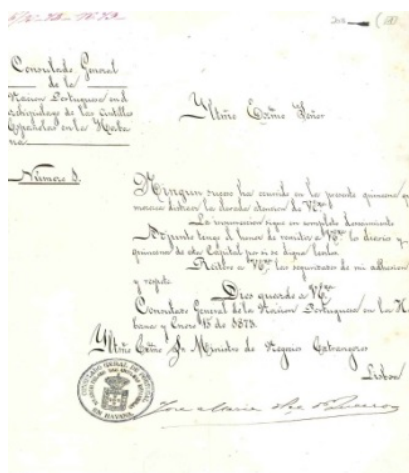 Consulado General
de la
Nacion Portuguesa en el
Archipielago de las Antillas
Españolas en la Haba
na.
Yltmo Exmo Señor
Número 3.
Ningun suceso ha ocurrido en la presente quincena q
merezca distraer la elevada atencion de VExa
La insurreccion sigue en completo decaimiento
Adjunto tengo el honor de remitir a VExa lo diario y
quincena de esta Capital por si se digna leerla.
Reitero a VExa las seguridades de mi adhesion
y respeto.
Dios guarde a VExa
Consulado General de la Nacion Portuguesa en la Ha
bana y Enero 15 de 1873.
Yltmo Exmo Sr Ministro de Negocios Extrangeros
Lisboa
CONSULADO GERAL DE PORTUGAL
EN HAVANA
Jose Maria